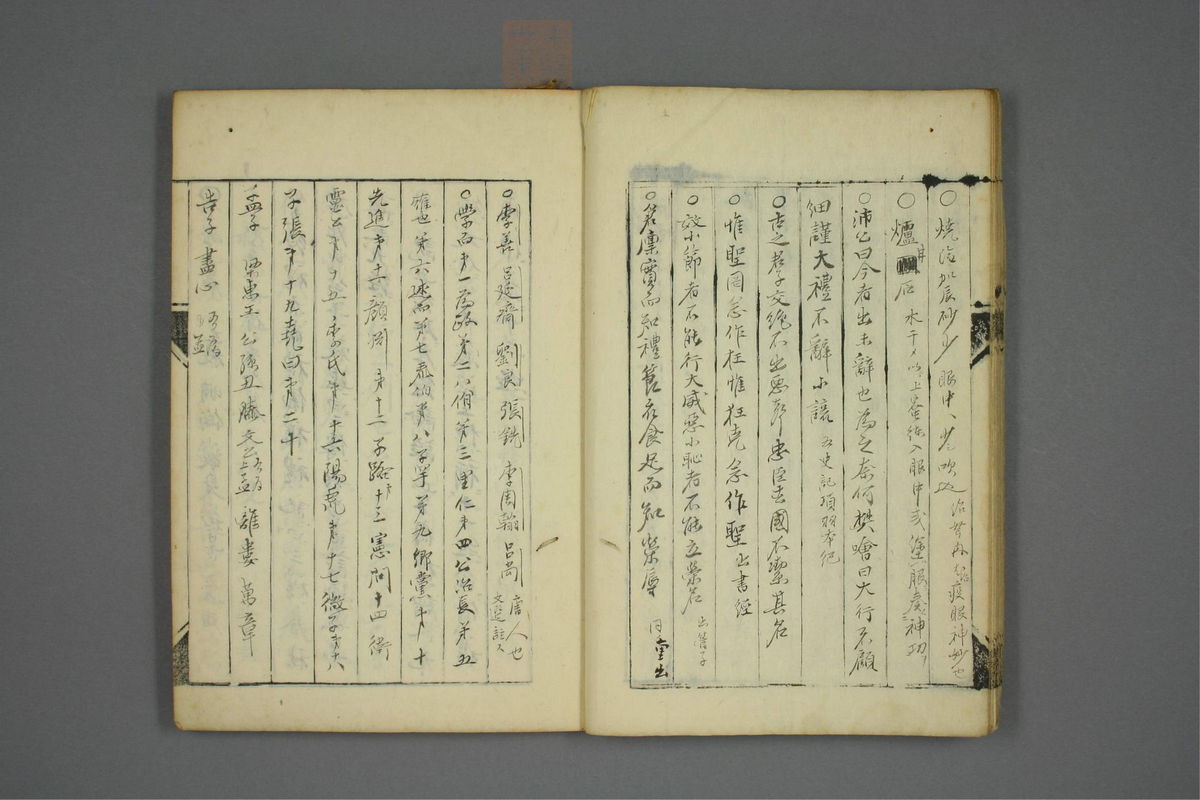 ○燒 加辰砂少 眼中 吹 眼神妙也
○爐甘石 水干〆以上 入眼中或塗眼 神功
○沛公曰今者出未辭也爲之奈何樊噲曰大行不顧
細謹大禮不辭小讓 史記項羽本紀
○古之君子交絶不出惡聲忠臣去國不潔其名
○惟聖罔念作狂惟狂克念作聖 出書經
○效小節者不能行大威惡小恥者不能立榮名 出管子
○倉廩實而知禮節衣食足而知榮辱 同
○李善 呂延濟 劉良 張銑 李周翰 呂向 唐人也 文選註人
○學而第一爲政第二八佾第三里仁第四公冶長第五
雍也第六述而第七泰伯第八子罕第九鄕黨第十
先進第十一顔淵第十二子路第十三憲問十四衛
靈公第十五季氏第十六陽虎第十七微子第十八
子張第十九堯曰第二十
孟子 梁惠王 公孫丑 滕文公 離婁 萬章
告子 盡心